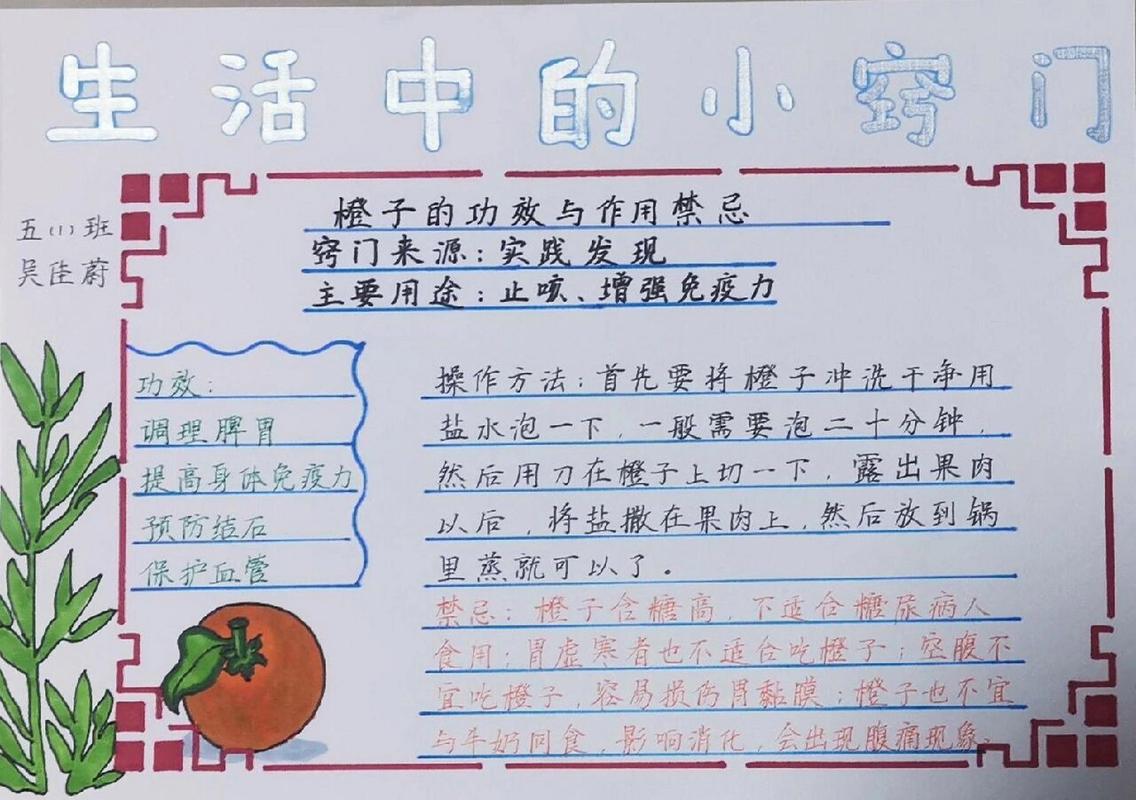 生活中的小窍门
五(1)班
吴佳蔚
橙子的功效与作用禁忌
窍门来源：实践发现
主要用途：止咳、增强免疫力
功效：
调理脾胃
提高身体免疫力
预防结石
保护血管
操作方法：首先要将橙子冲洗干净用
盐水泡一下，一般需要泡二十分钟，
然后用刀在橙子上切一下，露出果肉
以后，将盐撒在果肉上，然后放到锅
里蒸就可以了。
禁忌：橙子含糖高，不适合糖尿病人
食用；胃虚寒者也不适合吃橙子；空腹不
宜吃橙子，容易损伤胃黏膜；橙子也不宜
与牛奶同食，影响消化，会出现腹痛现象。